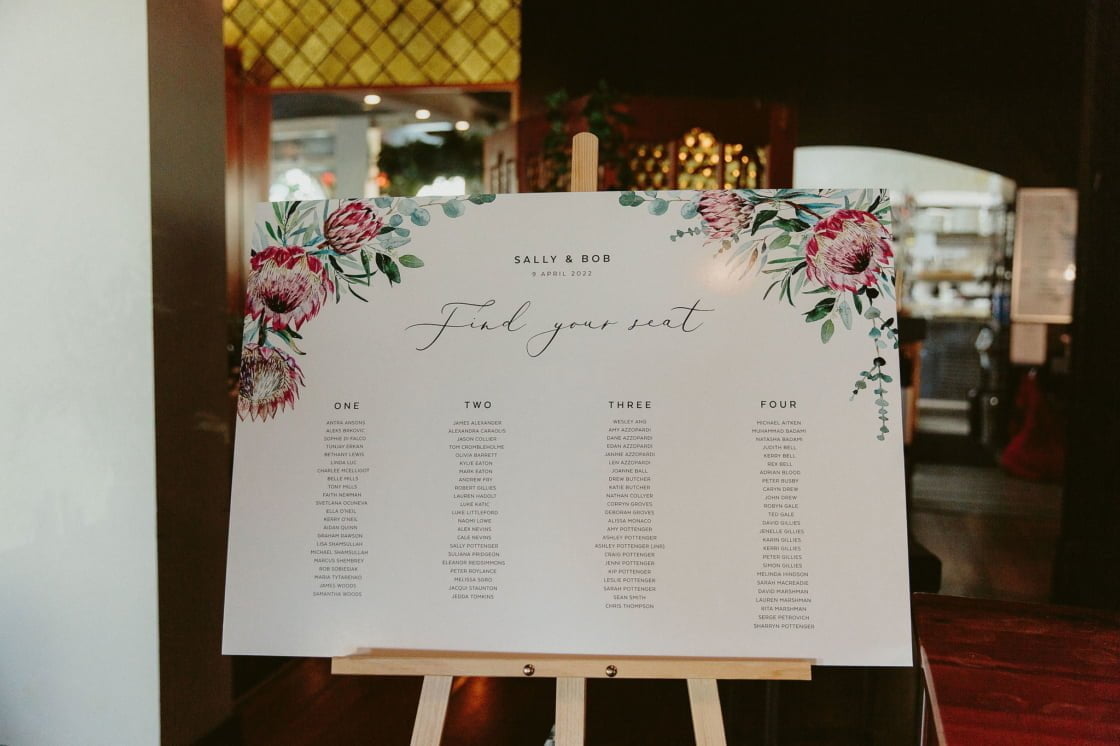 SALLY & BOB
9 APRIL 2022
Find your seat
ONE
ANTRA ANSONS
ALEKS BRKOVIC
SOPHIE DI FALCO
TUNJAY ERKAN
BETHANY LEWIS
LINDA LUC
CHARLEE MCELLIGOT
BELLE MILLS
TONY MILLS
FAITH NEWMAN
SVETLANA OCUNEVA
ELLA O'NEIL
KERRY O'NEIL
AIDAN QUINN
GRAHAM RAWSON
LISA SHAMSULLAH
MICHAEL SHAMSULLAH
MARCUS SHEMBREY
ROB SOBIESIAK
MARIA TYTARENKO
JAMES WOODS
SAMANTHA WOODS
TWO
JAMES ALEXANDER
ALEXANDRA CARAOLIS
JASON COLLIER
TOM CROMBLEHOLME
OLIVIA BARRETT
KYLIE EATON
MARK EATON
ANDREW FRY
ROBERT GILLIES
LAUREN HADOLT
LUKE KATIC
LUKE LITTLEFORD
NAOMI LOWE
ALEX NEVINS
CALE NEVINS
SALLY POTTENGER
SULIANA PRIDGEON
ELEANOR REIDSIMMONS
PETER ROYLANCE
MELISSA SGRO
JACQUI STAUNTON
JEDDA TOMKINS
THREE
WESLEY ANG
AMY AZZOPARDI
DANE AZZOPARDI
EDAN AZZOPARDI
JANINE AZZOPARDI
LEN AZZOPARDI
JOANNE BALL
DREW BUTCHER
KATIE BUTCHER
NATHAN COLLYER
CORRYN GROVES
DEBORAH GROVES
ALISSA MONACO
AMY POTTENGER
ASHLEY POTTENGER
ASHLEY POTTENGER (JNR)
CRAIG POTTENGER
JENNI POTTENGER
KIP POTTENGER
LESLIE POTTENGER
SARAH POTTENGER
SEAN SMITH
CHRIS THOMPSON
FOUR
MICHAEL AITKEN
MUHAMMAD BADAMI
NATASHA BADAMI
JUDITH BELL
KERRY BELL
REX BELL
ADRIAN BLOOD
PETER BUSBY
CARYN DREW
JOHN DREW
ROBYN GALE
TED GALE
DAVID GILLIES
JENELLE GILLIES
KARIN GILLIES
KERRI GILLIES
PETER GILLIES
SIMON GILLIES
MELINDA HINDSON
SARAH MACREADIE
DAVID MARSHMAN
LAUREN MARSHMAN
RITA MARSHMAN
SERGE PETROVICH
SHARRYN POTTENGER